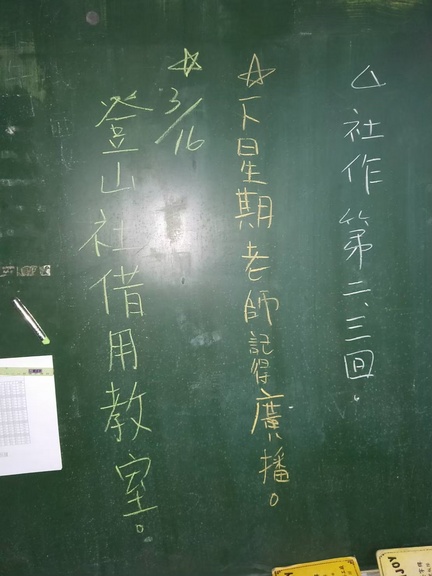 △社作第二、三回。
☆下星期老師記得廣播。
☆3/16
登山社借用教室。